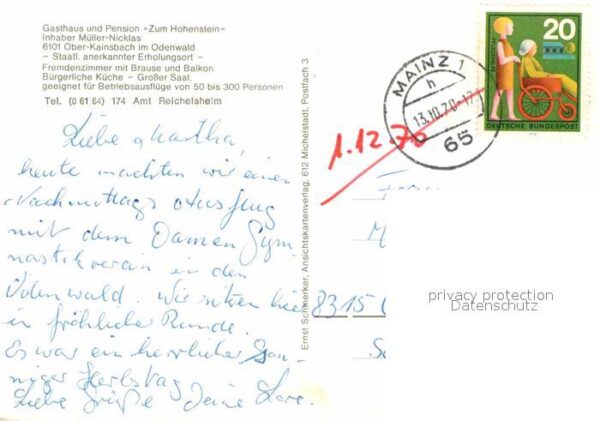 Gasthaus und Pension »Zum Hohenstein«
Inhaber Müller-Nicklas
6101 Ober-Kainsbach im Odenwald
– Staatl. anerkannter Erholungsort –
Fremdenzimmer mit Brause und Balkon
Bürgerliche Küche – Großer Saal,
geeignet für Betriebsausflüge von 50 bis 300 Personen
Tel. (0 61 64) 174 Amt Reichelsheim
Liebe Martha,
heute machten wir einen
Nachmittags Ausflug
mit dem Damen Gym-
nastikverein in den
Odenwald. Wir sitzen hier
in fröhlicher Runde.
Es war ein herrlicher Son-
niger Herbstag
Liebe Grüße Deine Lore.
Ernst Schmerker, Ansichtskartenverlag, 612 Michelstadt, Postfach 3
MAINZ 1
h
13.10.70-17
65
20
DEUTSCHE BUNDESPOST
1.12.70
8315
privacy protection
Datenschutz